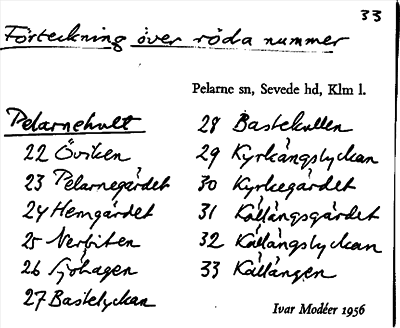 33
Förteckning över röda nummer
Pelarne sn, Sevede hd, Klm l.
Pelarnehult
22 Öviken
23 Pelarnegärdet
24 Hemgärdet
25 Nerbiten
26 Sjöhagen
27 Bastelyckan
28 Bastekullen
29 Kyrkängslyckan
30 Kyrkegärdet
31 Källängsgärdet
32 Källängslyckan
33 Källängen
Ivar Modéer 1956